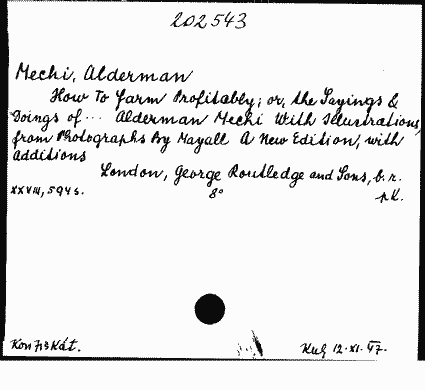 202543
Mechi, Alderman
How To Farm Profitably; or, the Sayings &
Doings of ... Alderman Mechi With Illustrations,
from Photographs By Mayall A New Edition, with
Additions
London, George Routledge and Sons, b. r.
XXVIII, 594 s. 8° pK.
Konfiskát. 12.XI.47.